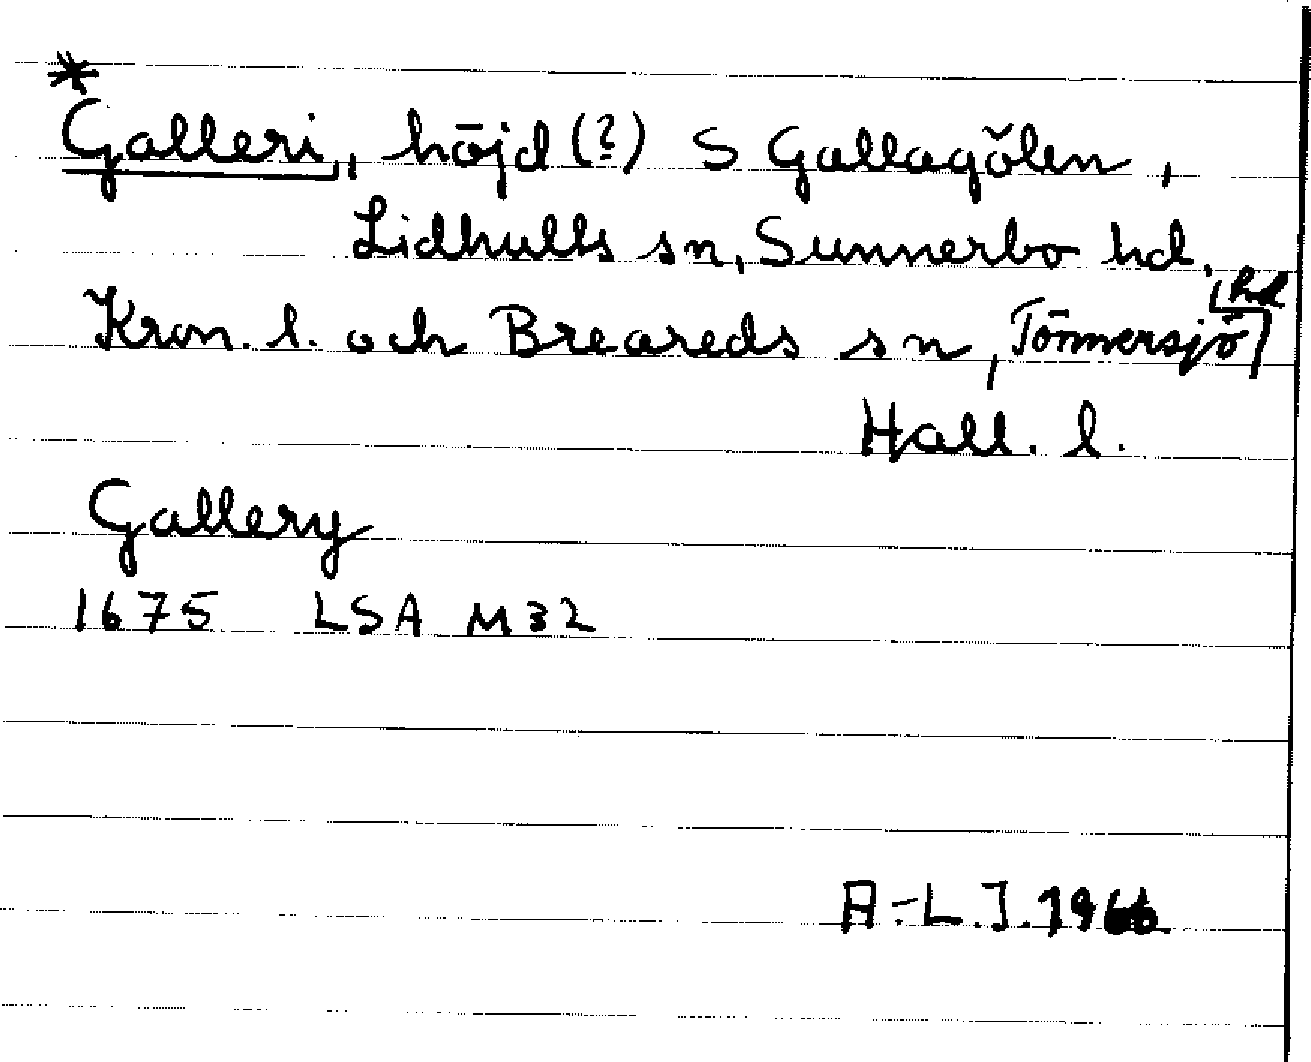 *
Galleri, höjd (?) S Gallagölen,
Lidhults sn, Sunnerbo hd,
Kron. l. och Breareds sn, Tönnersjö hd
Hall. l.
Gallery
1675 LSA M32
A-L.J. 1966